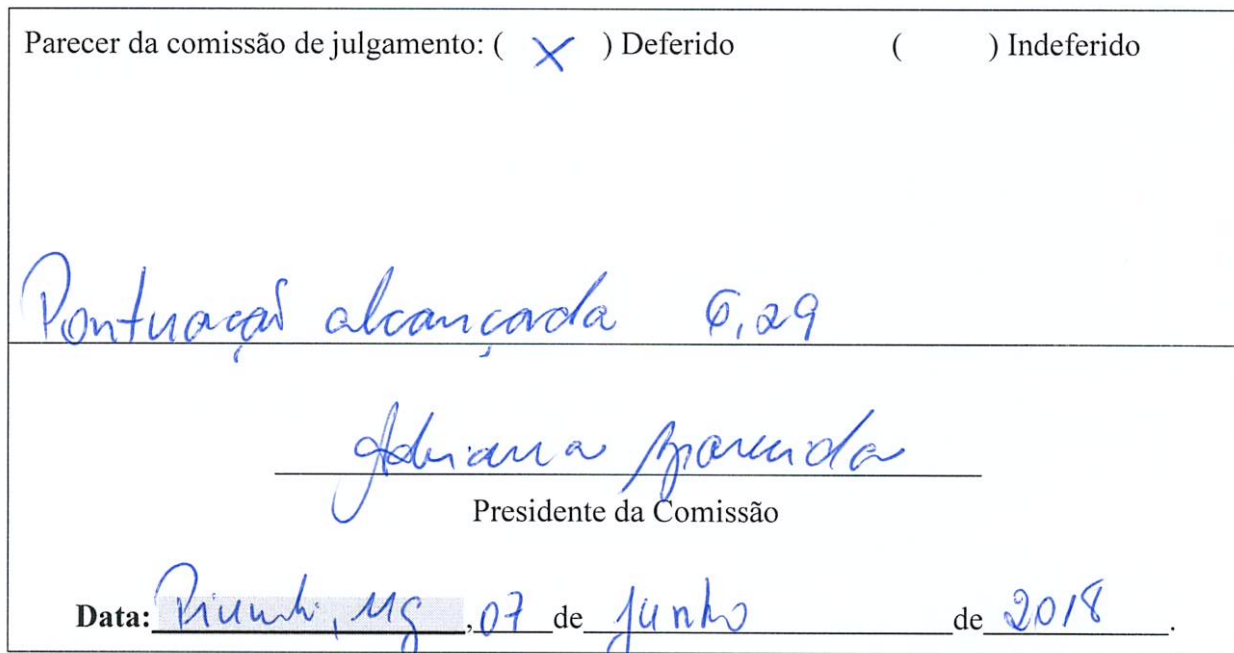 Parecer da comissão de julgamento: ( X ) Deferido ( ) Indeferido
Pontuação alcançada 6,29
Adriana Aparecida
Presidente da Comissão
Data: Piumhi, MG, 07 de junho de 2018.